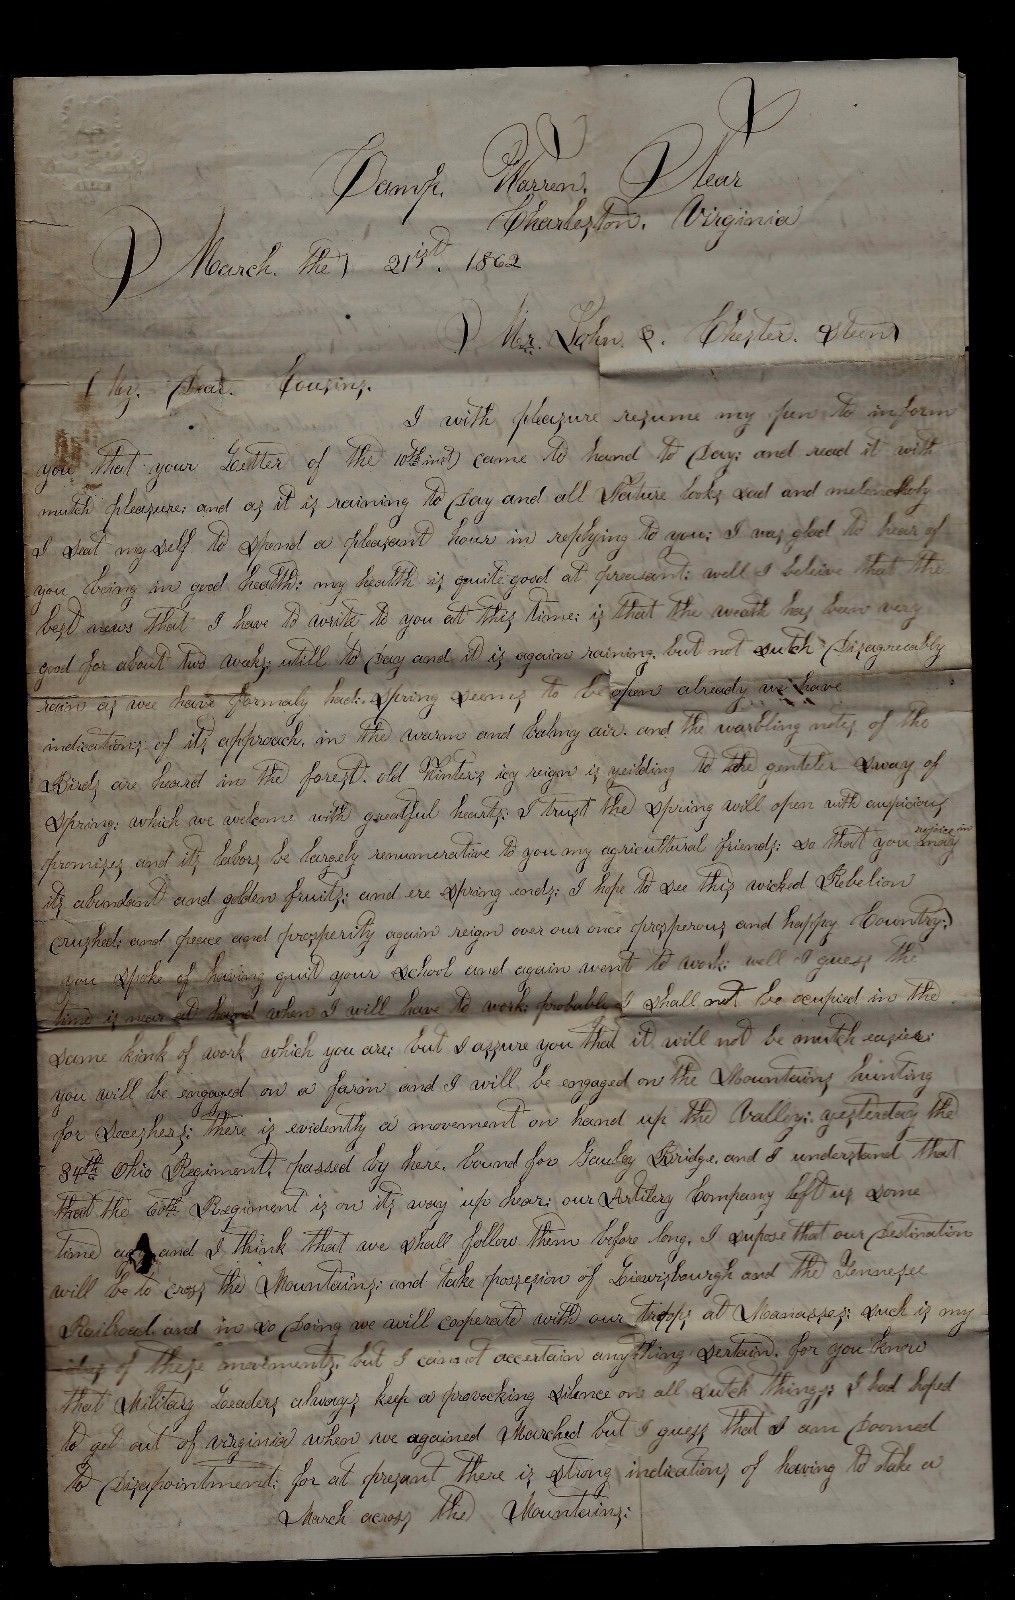 Camp. Warren. Near
Charleston. Virginia
March. the 21ist. 1862
Mr. John. & Chester. Steen
My. Dear. Cousins.
I with pleasure resume my pen to inform
you that your Letter of the 10th inst came to hand to Day; and read it with
mutch pleasure; and as it is raining to Day and all Nature looks sad and melencholy
I seat my self to spend a pleasant hour in replying to you; I was glad to hear of
you being in good health; my health is quite good at preasant; well I beleive that the
best news that I have to write to you at this time; is that the weath has been very
good for about two weeks; utill to Day and it is again raining, but not sutch Disagreeably
rain as wee have formaly had; spring seems to be open already we have
indications of its approach. in the warm and balmy air. and the warbling notes of the
Birds are heard in the forest. old Winters icy reign is yeilding to the genteler sway of
Spring; which we welcome with greatful hearts; I trust the spring will open with auspicious
promises and its labors be largely renumerative to you my agricultural friends; so that you may rejoice in
its abundant and golden fruits; and ere spring ends; I hope to see this wicked Rebelion
Crushed; and peace and prosperity again reign over our once prosperous and happy Country;
you spoke of having quit your school and again went to work; well I guess the
time is near at hand when I will have to work; probable I shall not be ocupied in the
same kink of work which you are; but I assure you that it will not be mutch easier;
you will be engaged on a farm and I will be engaged on the Mountains hunting
for Seceshers; there is evidently a movement on hand up the Valley; yesterday the
34th Ohio Regiment, passed by here. bound for Gauley Bridge. and I understand that
that the 60th Regiment is on its way up hear; our Artilery Company left us some
time ago and I think that we shall follow them before long, I supose that our Destination
will be to cross the Mountains; and take possesion of Liewisbourgh and the Tennesee
Railroad. and in so Doing we will cooperate with our troops at Manasses; such is my
idea of these movements. but I cannot accertain anything sertain. for you know
that Military Leaders always keep a provocking silence on all sutch things; I had hoped
to get out of virginia when we agained Marched but I guess that I am Doomed
to Disapointment; for at presant there is strong indications of having to take a
March across the Mountains;